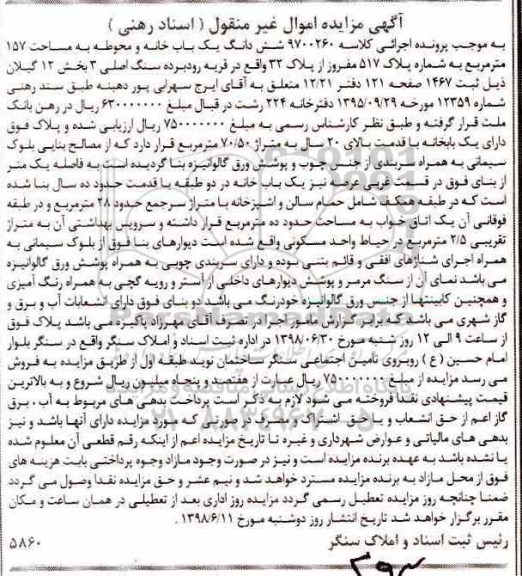 آگهی مزایده اموال غیر منقول ( اسناد رهنی )
به موجب پرونده اجرائی کلاسه ۹۷۰۰۲۶۰ شش دانگ یک باب خانه و محوطه به مساحت ۱۵۷
مترمربع به شماره پلاک ۵۱۷ مفروز از پلاک ۳۲ واقع در قریه رودبرده سنگ اصلی ۳ بخش ۱۲ گیلان
ذیل ثبت ۱۴۶۷ صفحه ۱۲۱ دفتر ۱۲/۲۱ متعلق به آقای ایرج سهرابی پور دهینه طبق سند رهنی
شماره ۱۲۳۵۹ مورخه ۱۳۹۵/۰۹/۲۹ دفترخانه ۲۲۴ رشت در قبال مبلغ ۶۳۰۰۰۰۰۰۰ ریال در رهن بانک
ملت قرار گرفته و طبق نظر کارشناس رسمی به مبلغ ۷۵۰۰۰۰۰۰۰ ریال ارزیابی شده و پلاک فوق
دارای یک بابخانه با قدمت بالای ۲۰ سال به متراژ ۷۰/۵۰ مترمربع قرار دارد که از مصالح بنایی بلوک
سیمانی به همراه سربندی از جنس چوب و پوشش ورق گالوانیزه بنا گردیده است به فاصله یک متر
از بنای فوق در قسمت غربی عرصه نیز یک باب خانه در دو طبقه با قدمت حدود ده سال بنا شده
است که در طبقه همکف شامل حمام سالن و اشپزخانه با متراژ سرجمع حدود ۲۸ مترمربع و در طبقه
فوقانی آن یک اتاق خواب به مساحت حدود ده مترمربع قرار داشته و سرویس بهداشتی آن به متراژ
تقریبی ۲/۵ مترمربع در حیاط واحد مسکونی واقع شده است دیوارهای بنا فوق از بلوک سیمانی به
همراه اجرای شناژهای افقی و قائم بتنی بوده و دارای سربندی چوبی به همراه پوشش ورق گالوانیزه
می باشد نمای آن از سنگ مرمر و پوشش دیوارهای داخلی از آستر و رویه گچی به همراه رنگ آمیزی
و همچنین کابینتها از جنس ورق گالوانیزه خودرنگ می باشد دو بنای فوق دارای انشعابات آب و برق و
گاز شهری می باشد که برابر گزارش مامور اجرا در تصرف آقای مهرزاد پاکیزه می باشد پلاک فوق
از ساعت ۹ الی ۱۲ روز شنبه مورخ ۱۳۹۸/۰۶/۳۰ در اداره ثبت اسناد و املاک سنگر واقع در سنگر بلوار
امام حسین ( ع ) روبروی تامین اجتماعی سنگر ساختمان نوید طبقه اول از طریق مزایده به فروش
می رسد مزایده از مبلغ ۷۵۰۰۰۰۰۰۰ ریال عبارت از هفتصد و پنجاه میلیون ریال شروع و به بالاترین
قیمت پیشنهادی نقدا فروخته می شود لازم به ذکر است پرداخت بدهی های مربوط به آب ، برق
گاز اعم از حق انشعاب و یا حق اشتراک و مصرف در صورتی که مورد مزایده دارای آنها باشد و نیز
بدهی های مالیاتی و عوارض شهرداری و غیره تا تاریخ مزایده اعم از اینکه رقم قطعی آن معلوم شده
یا نشده باشد به عهده برنده مزایده است و نیز در صورت وجود مازاد وجوه پرداختی بابت هزینه های
فوق از محل مازاد به برنده مزایده مسترد خواهد شد و نیم عشر و حق مزایده نقدا وصول می گردد
ضمنا چنانچه روز مزایده تعطیل رسمی گردد مزایده روز اداری بعد از تعطیلی در همان ساعت و مکان
مقرر برگزار خواهد شد تاریخ انتشار روز دوشنبه مورخ ۱۳۹۸/۶/۱۱ .
رئیس ثبت اسناد و املاک سنگر
۵۸۶۰